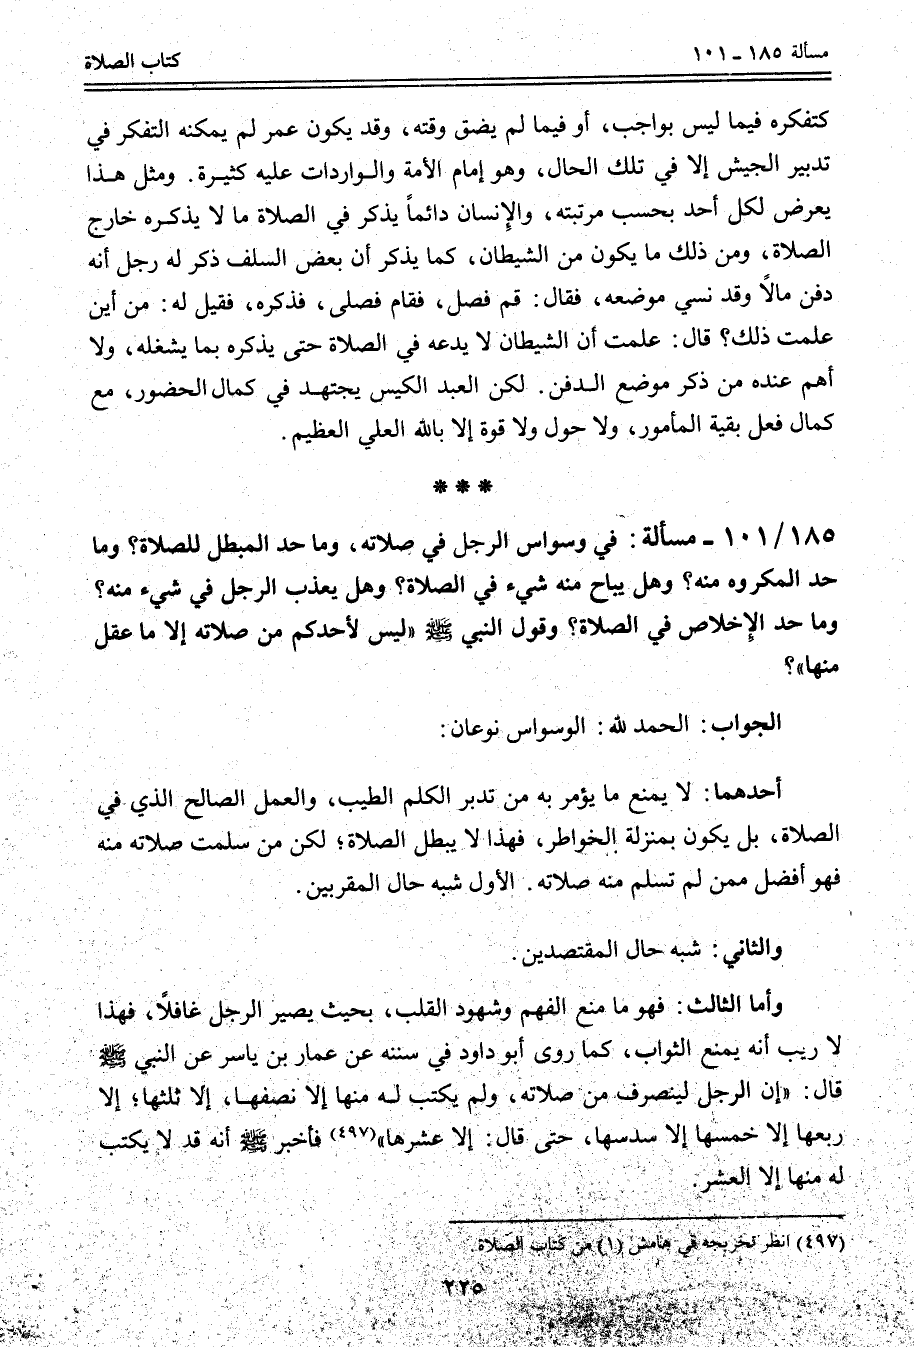 مسألة ١٨٥ ـ ١٠١
كتاب الصلاة
كتفكره فيما ليس بواجب، أو فيما لم يضق وقته، وقد يكون عمر لم يمكنه التفكر في
تدبير الجيش إلا في تلك الحال، وهو إمام الأمة والـواردات عليه كثيـرة. ومثل هـذا
يعرض لكل أحد بحسب مرتبته، والإنسان دائماً يذكر في الصلاة ما لا يذكـره خارج
الصلاة، ومن ذلك ما يكون من الشيطان، كما يذكر أن بعض السلف ذكر له رجل أنه
دفن مالاً وقد نسي موضعه، فقال: قم فصل، فقام فصلى، فذكره، فقيل له: من أين
علمت ذلك؟ قال: علمت أن الشيطان لا يدعه في الصلاة حتى يذكره بما يشغله، ولا
أهم عنده من ذكر موضع الـدفن. لكن العبد الكيس يجتهـد في كمال الحضور، مع
كمال فعل بقية المأمور، ولا حول ولا قوة إلا بالله العلي العظيم.
* * *
١٠١/١٨٥ ـ مسألة: في وسواس الرجل في صلاته، وما حد المبطل للصلاة؟ وما
حد المكروه منه؟ وهل يباح منه شيء في الصلاة؟ وهل يعذب الرجل في شيء منه؟
وما حد الإخلاص في الصلاة؟ وقول النبي ﷺ «ليس لأحدكم من صلاته إلا ما عقل
منها»؟
الجواب: الحمد لله: الوسواس نوعان:
أحدهما: لا يمنع ما يؤمر به من تدبر الكلم الطيب، والعمل الصالح الذي في
الصلاة، بل يكون بمنزلة الخواطر، فهذا لا يبطل الصلاة؛ لكن من سلمت صلاته منه
فهو أفضل ممن لم تسلم منه صلاته. الأول شبه حال المقربين.
والثاني: شبه حال المقتصدين.
وأما الثالث: فهو ما منع الفهم وشهود القلب، بحيث يصير الرجل غافلاً، فهذا
لا ريب أنه يمنع الثواب، كما روى أبو داود في سننه عن عمار بن ياسر عن النبي ﷺ
قال: «إن الرجل لينصرف من صلاته، ولم يكتب لـه منها إلا نصفهـا، إلا ثلثها؛ إلا
ربعها إلا خمسها إلا سدسها، حتى قال: إلا عشرها»(٤٩٧) فأخبر ﷺ أنه قد لا يكتب
له منها إلا العشر.
(٤٩٧) انظر تخريجه في هامش (١) من كتاب الصلاة.
٢٢٥